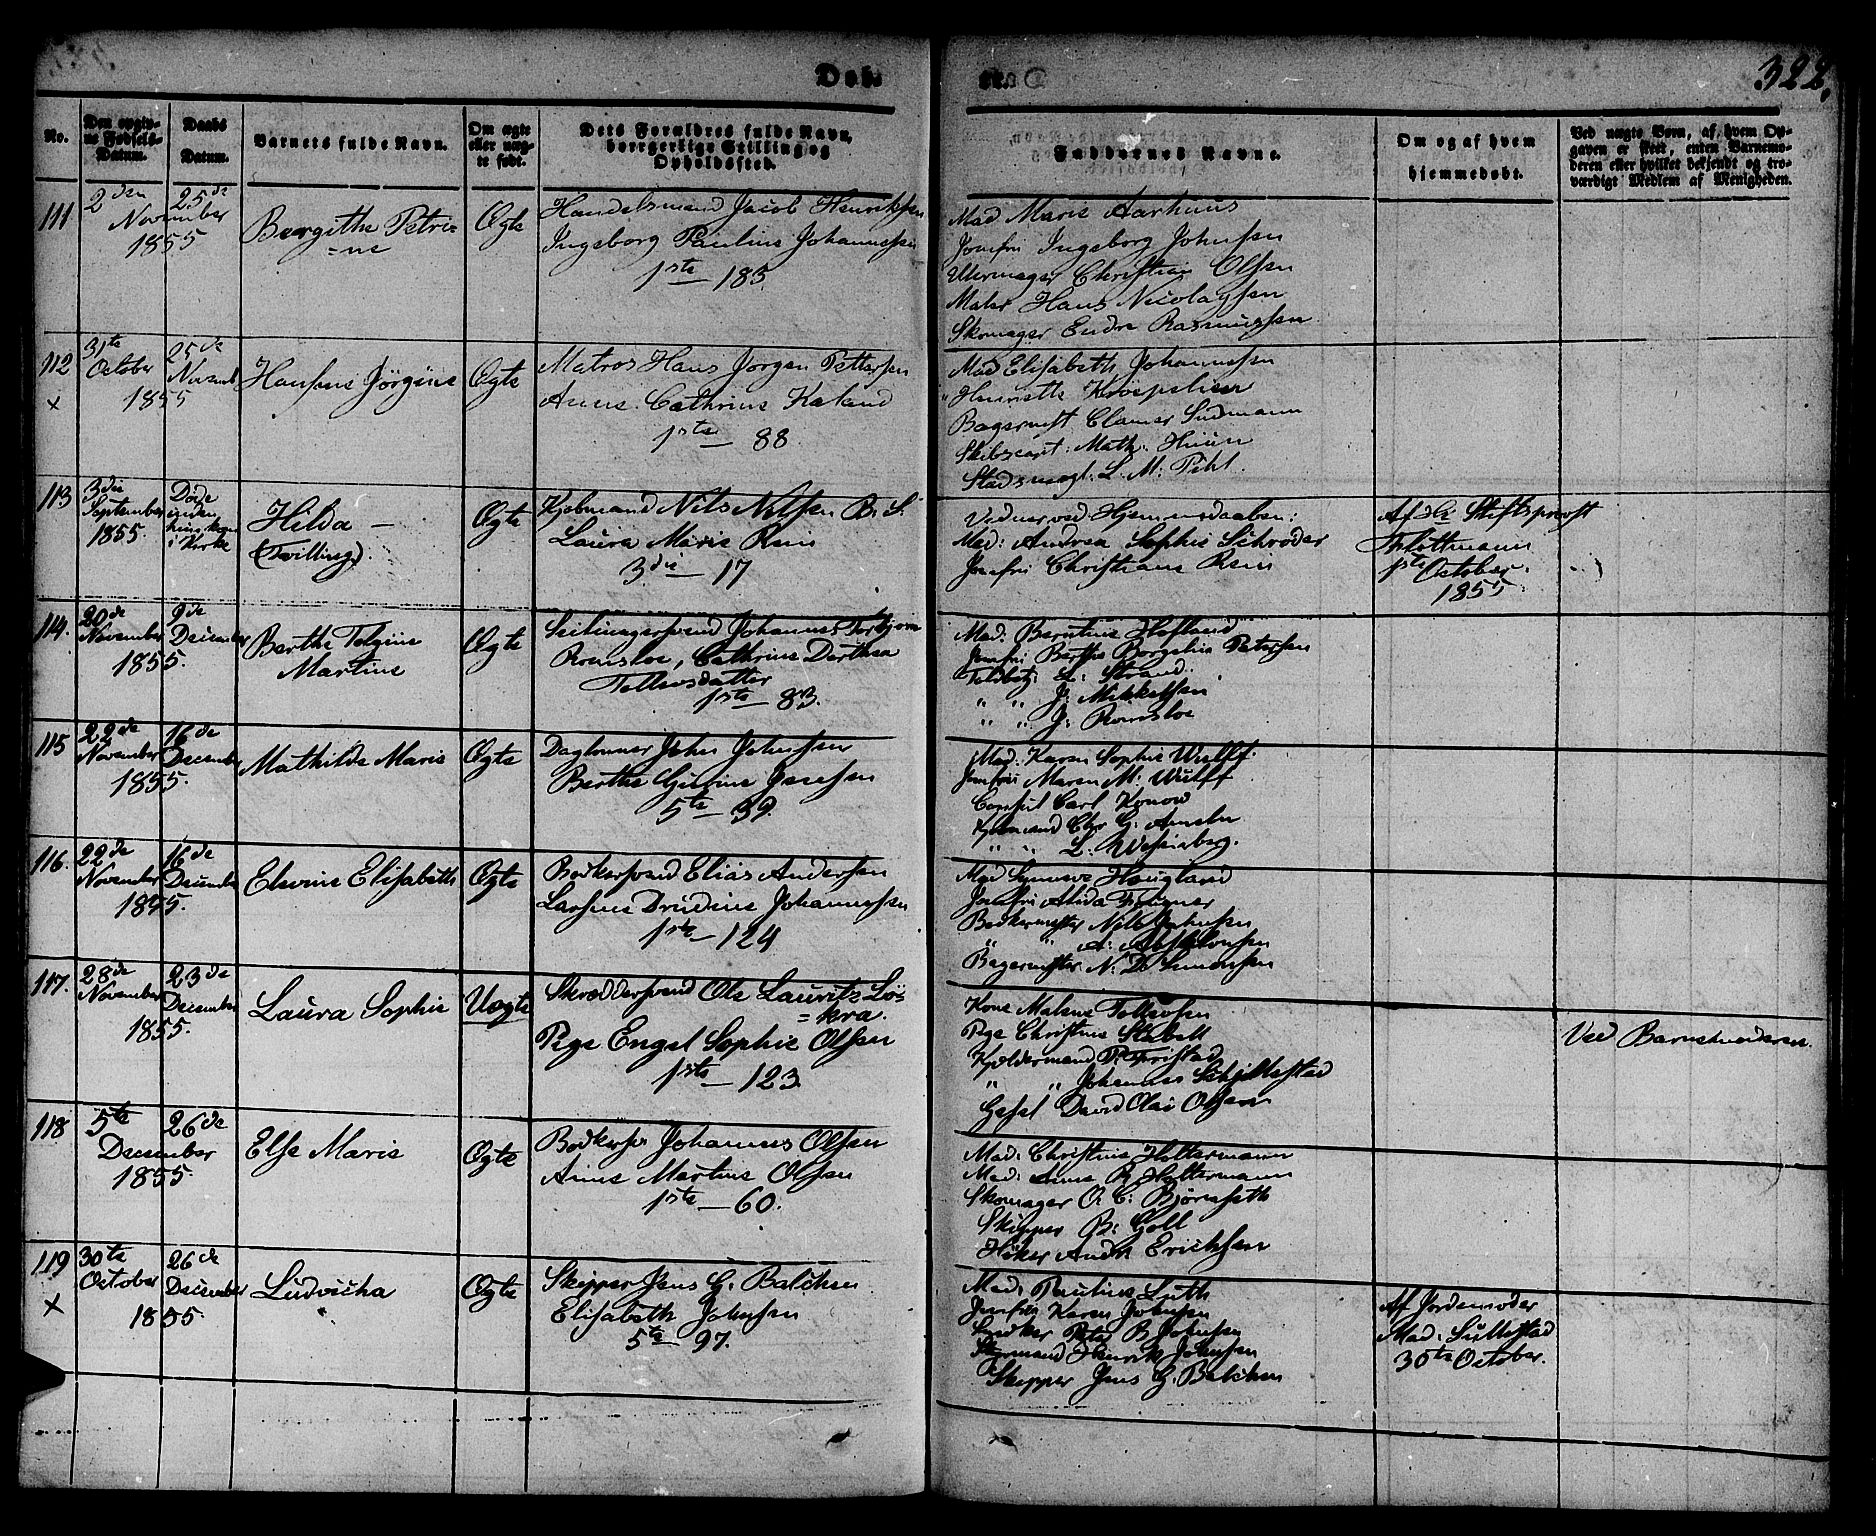 Døb.
322.
No.
Den opgiv-
ne Fødsels-
Datum.
Daabs
Datum.
Barnets fulde Navn.
Om ægte
eller uæg-
te født.
Dets Forældres fulde Navn,
borgerlige Stilling og
Opholdssted.
Faddernes Navne.
Om og af hvem
hjemmedøbt.
Ved uægte Børn, af hvem Op-
gaven er skeet, enten Barnemo-
deren eller hvilket bekjendt og tro-
værdigt Medlem af Menigheden.
111
2den
November
1855
25de
Bergithe Petri-
=ne
Ægte
Handelsmand Jacob Henriksen
Ingeborg Pauline Johannessen
1ste — 183
Mad Marie Aarhuus
Jomfru Ingeborg Johnsen
Uhrmager Christian Olsen
Maler Hans Nicolaysen
Skomager Endre Rasmussen
112
×
31te
October
1855
25de
Novemb
Hansine Jørgine
Ægte
Matros Hans Jørgen Pettersen
Anne Cathrine Kaland
1ste — 88.
Mad Elisabeth Johannessen
" Henriette Kroepelien
Bagermest Clamer Sudmann
Skibscapt: Math:
Stadsmægl. L. M: Pihl.
113
3die
September
1855.
Døde
inden
i Kirke
Hilda —
(Tvilling).
Ægte
Kjøbmand Nils Nilsen B. S.
Laura Marie
3die — 17
Vidner ved Hjemmedaaben:
Mad: Andrea Sophie Schrøder
Jomfru Christiane
Af Hr Stiftsprovst
1ste October.
1855.
114.
20de
November
1855.
9de
December
Berthe Tolgine
Martine
Ægte
Seilmagersvend Johannes Torbjørn
Romsloe, Cathrine Dorthea
Tollevsdatter
1ste — 83.
Mad: Berntine Hofland
Jomfru Berthe Borgelia Petersen
Toldbetj: L: Strand.
" " J: Mikkelsen
" " J: Romsloe
115
22de
November
1855.
16de
December
Mathilde Marie
Ægte
Daglønner John Johnsen
Berthe Gurine Jansen
5te — 39.
Mad. Karen Sophie Wulff
Jomfru Maren M: Wulff
Consul Carl Konow
Kjøbmand Chr G:
" " L. Wesenberg.
116.
22de
November
1855.
16de
December
Elevine Elisabeth
Ægte
Bødkersvend Elias Andersen
Larsine Drudine Johannessen
1ste — 124
Mad Synneve Hougland
Jomfru Alida
Bødkermester Nils Johnsen
" " A: Absalonsen
Bagermester N. D. Simonsen
117.
28de
November
1855.
23de
December
Laura Sophie
Uægte
Skreddersvend Ole Lauritz Lø-
=kra.
Pige Engel Sophie Olsen
1ste — 123
Kone Malene Tollevsen
Pige Christine Slabell
Kjeldermand P.
" " Johannes
Gesel David Olai Olsen
Ved Barnemoderen.
118
5te
December
1855.
26de
Else Marie
Ægte
Bødkersv Johannes Olsen
Anne Martine Olsen
1ste — 60.
Mad. Christine Holtermann
Mad: Anne B. Holtermann
Skomager O. C: Bjørnseth
Skipper B: Goll
Høker Andr Ericksen
119
×
30te
October
1855.
26de
December
Ludvicha
Ægte
Skipper Jens G. Balchen
Elisabeth Johnsen
5te — 97.
Mad. Pauline Luth
Jomfru Karen Johnsen
Peter B Johnsen
Henrik Johnsen
Skipper Jens G. Balchen
Af Jordemoder
Mad: Sullestad
30te October.